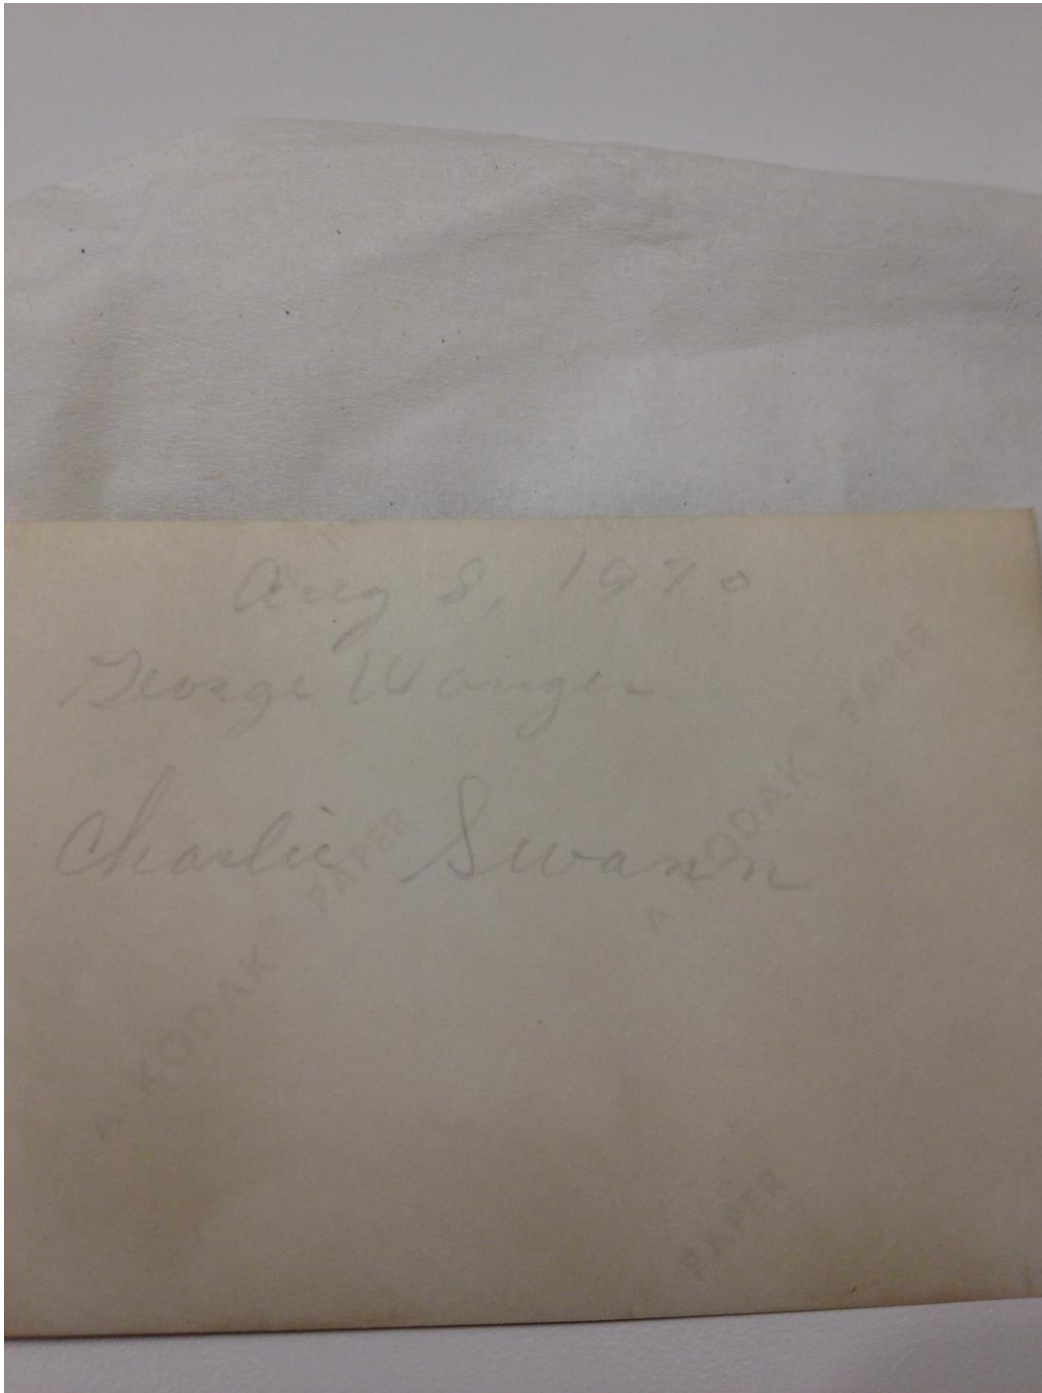 Aug 8, 1970
George Wanger
Charlie Swann
A KODAK® PAPER
A KODAK® PAPER
PAPER